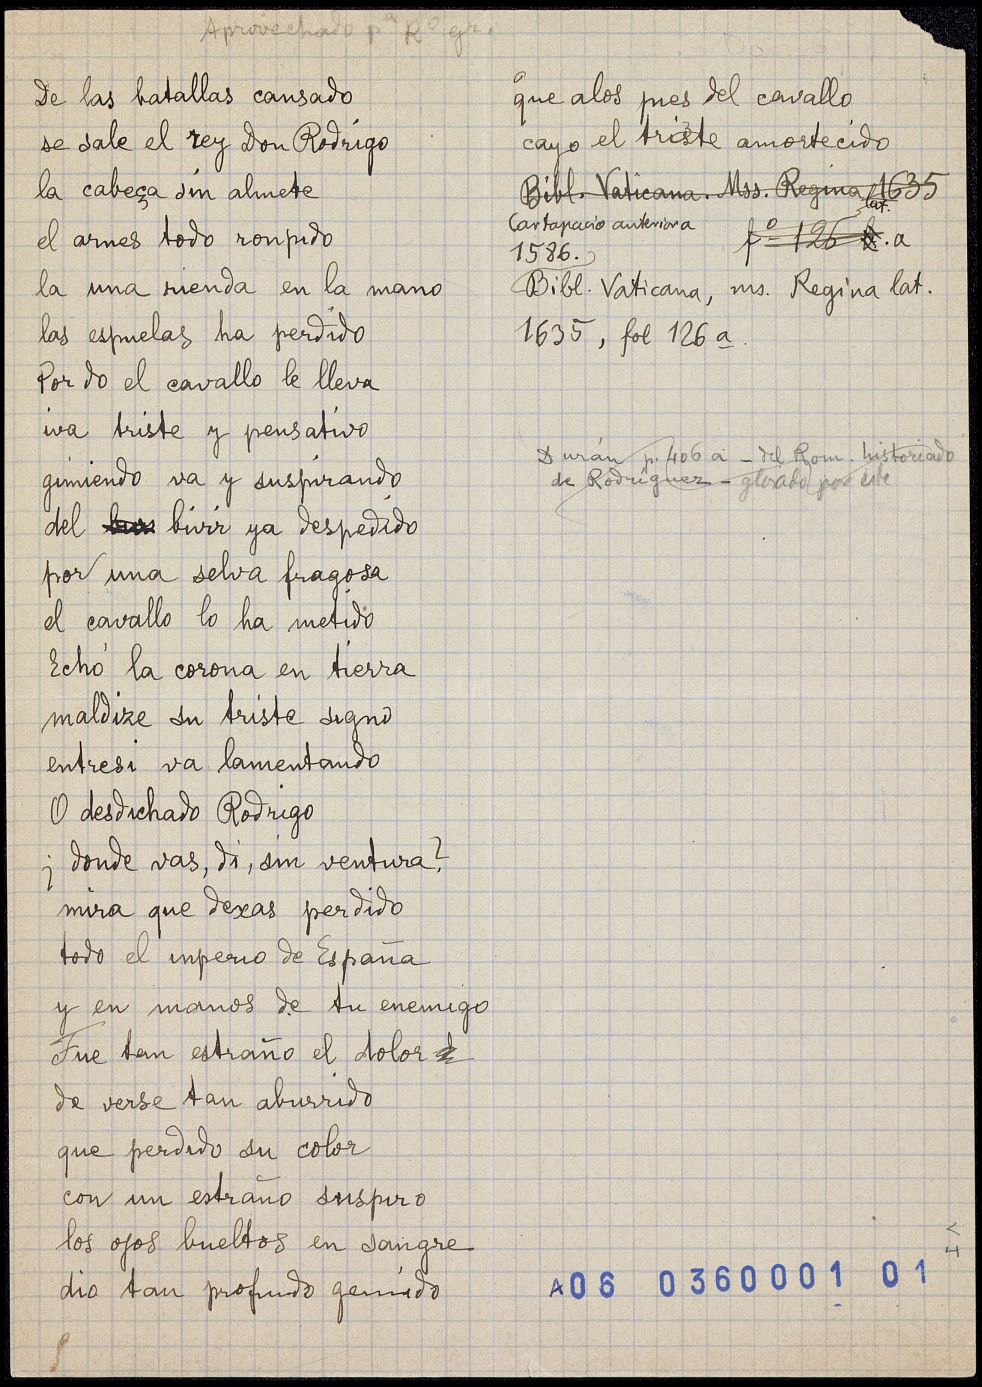 Aprovechado pª Rº gr.
De las batallas cansado
se sale el rey Don Rodrigo
la cabeça sin almete
el arnes todo ronpido
la una rienda en la mano
las espuelas ha perdido
Por do el cavallo le lleva
iva triste y pensativo
gimiendo va y suspirando
del bivir ya despedido
por una selva fragosa
el cavallo lo ha metido
Echó la corona en tierra
maldize su triste signo
entresi va lamentando
O desdichado Rodrigo
¿ donde vas, di, sin ventura?
mira que dexas perdido
todo el inperio de España
y en manos de tu enemigo
Fue tan estraño el dolor
de verse tan aburrido
que perdido su color
con un estraño suspiro
los ojos bueltos en sangre
dio tan profundo gemido
que alos pies del cavallo
cayo el triste amortecido
Bibl. Vaticana. Mss. Regina lat. 1635
Cartapacio anterior a
1586.
fº 126 .a
Bibl. Vaticana, ms. Regina lat.
1635, fol 126 a.
Durán p. 406 a - del Rom. historiado
de Rodríguez - glosado por este
A06 0360001 01